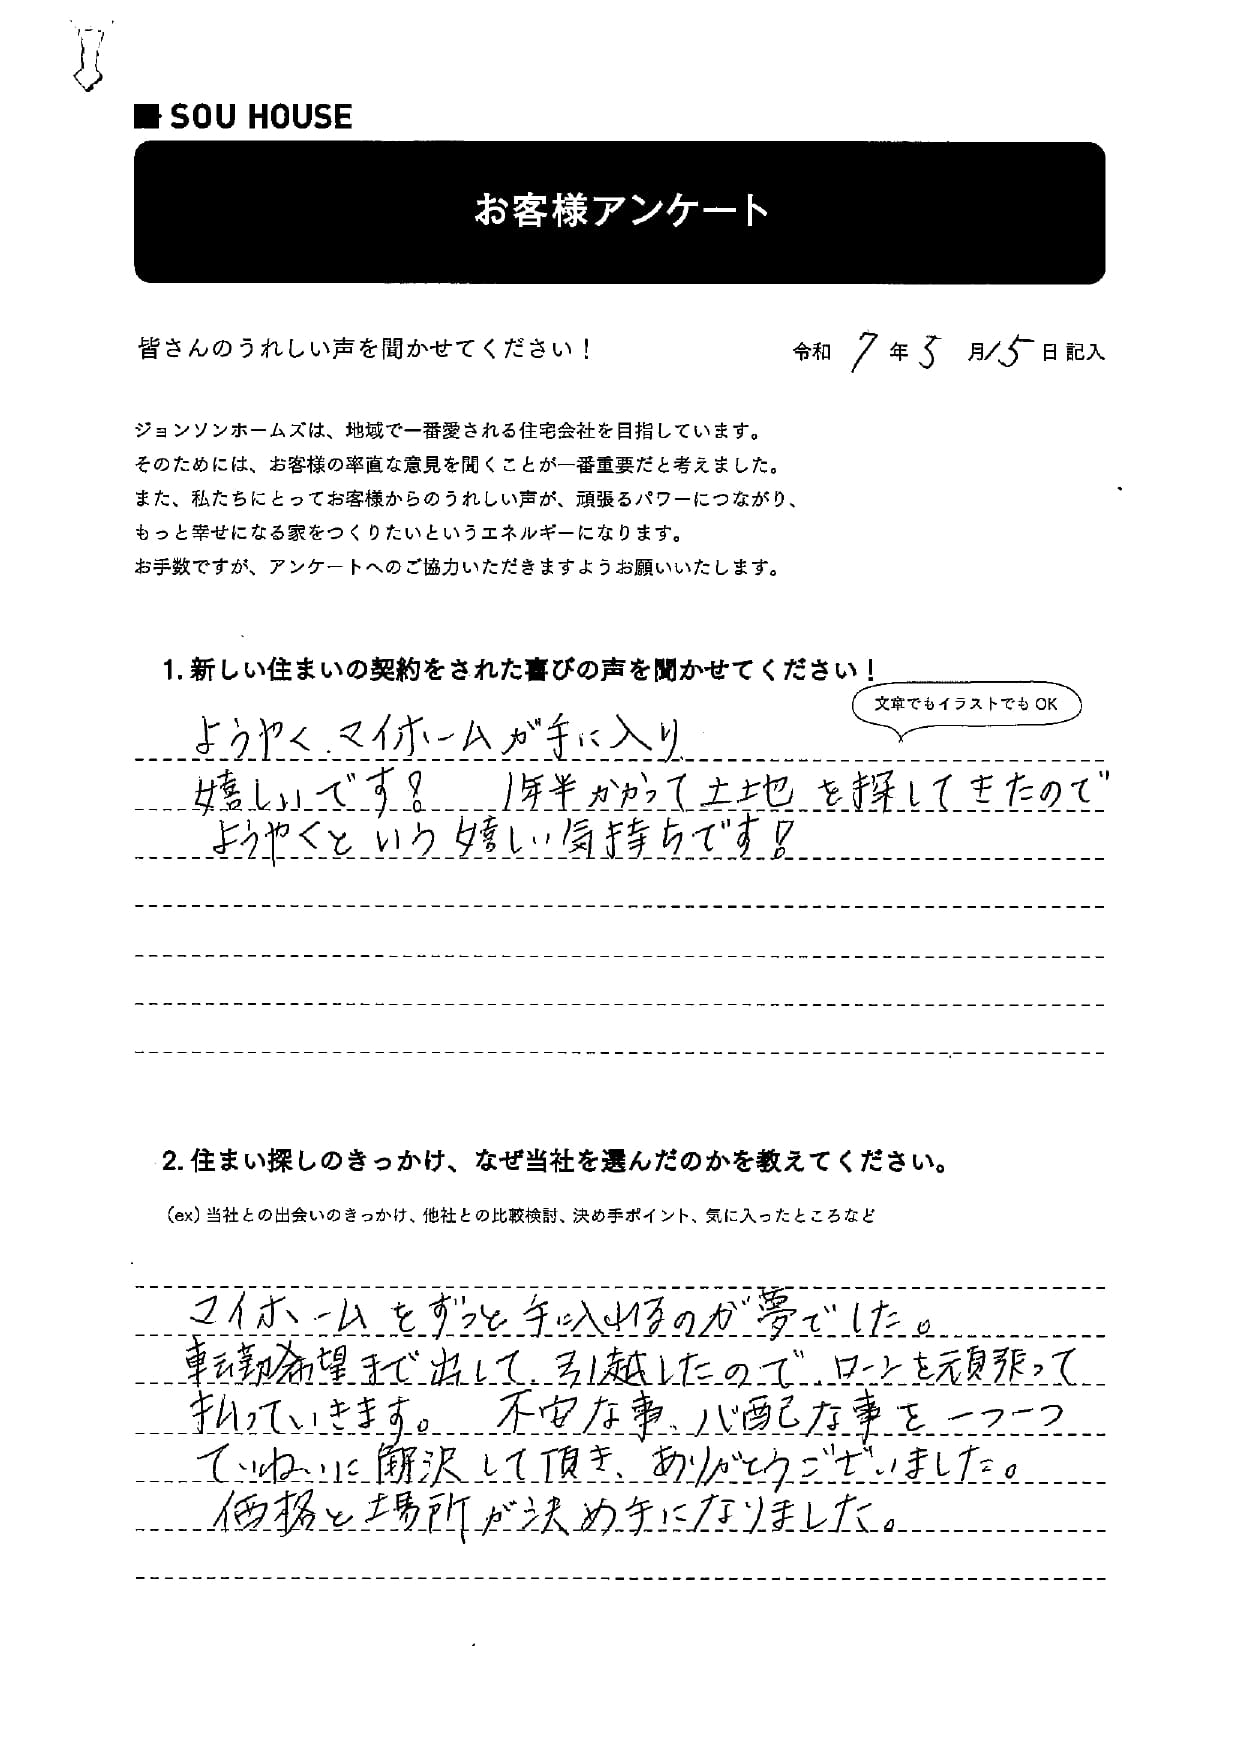 SOU HOUSE
お客様アンケート
皆さんのうれしい声を聞かせてください！ 令和 7 年 5 月 15 日 記入
ジョンソンホームズは、地域で一番愛される住宅会社を目指しています。
そのためには、お客様の率直な意見を聞くことが一番重要だと考えました。
また、私たちにとってお客様からのうれしい声が、頑張るパワーにつながり、
もっと幸せになる家をつくりたいというエネルギーになります。
お手数ですが、アンケートへのご協力いただきますようお願いいたします。
1. 新しい住まいの契約をされた喜びの声を聞かせてください！
文章でもイラストでも OK
ようやく、マイホームが手に入り
嬉しいです！ 1年半かかって土地を探してきたので
ようやくという嬉しい気持ちです！
2. 住まい探しのきっかけ、なぜ当社を選んだのかを教えてください。
（ex）当社との出会いのきっかけ、他社との比較検討、決め手ポイント、気に入ったところなど
マイホームをずっと手に入れるのが夢でした。
転勤希望まで出して、引越したので、ローンを頑張って
払っていきます。 不安な事、心配な事を一つ一つ
ていねいに解決して頂き、ありがとうございました。
価格と場所が決め手になりました。